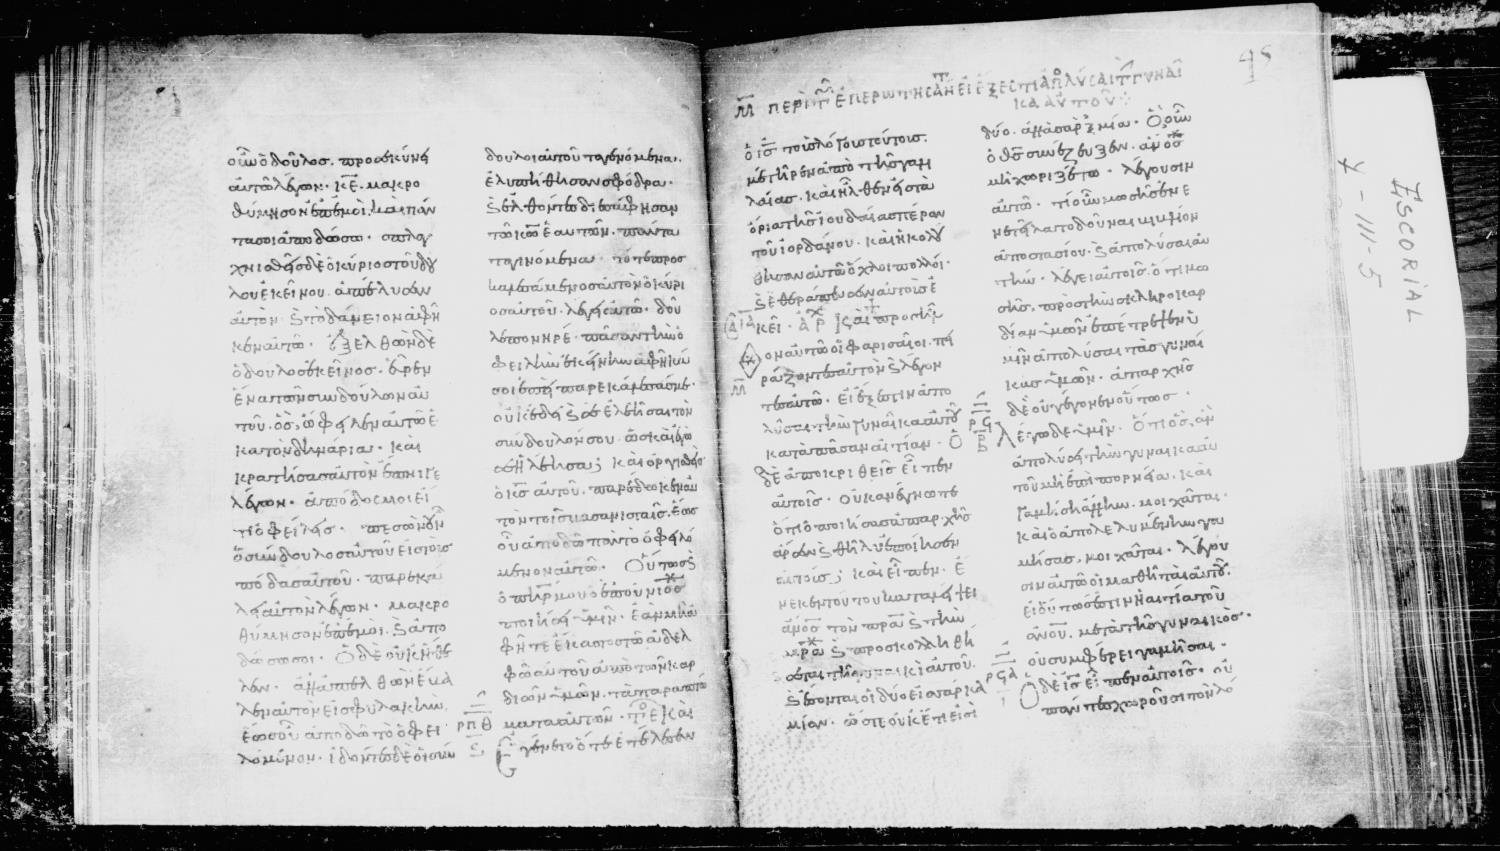 οὖν ὁ δοῦλος. προσεκύνει
αὐτῶ λέγων· κ̅ε̅. μακρο
θύμησον ἐπ' ἐμοὶ. καὶ πάν
τα σοι ἀποδώσω· σπλαγ
χνισθεὶς δὲ ὁ κύριος τοῦ δού
λου ἐκείνου. ἀπέλυσεν
αὐτὸν· καὶ τὸ δάνειον ἀφῆ
κεν αὐτῶ· ἐξελθὼν δὲ
ὁ δοῦλος ἐκεῖνος. εὗρεν
ἕνα τῶν συνδούλων αὐ
τοῦ. ὃς ὤφειλεν αὐτῶ ἑ
κατὸν δηνάρια· καὶ
κρατήσας αὐτὸν ἔπνιγε
λέγων· ἀπόδος μοι εἴ
τι ὀφείλεις· πεσὼν οὖν
ὁ σύνδουλος αὐτοῦ εἰς τοὺς
πόδας αὐτοῦ. παρεκά
λει αὐτὸν λέγων· μακρο
θύμησον ἐπ' ἐμοὶ. καὶ ἀπο
δώσω σοι· Ὁ δὲ οὐκ ἤθε
λεν· ἀλλὰ ἀπελθὼν ἔβα
λεν αὐτὸν εἰς φυλακὴν.
ἕως οὗ ἀποδῶ τὸ ὀφει
λόμενον· ἰδόντες δὲ οἱ σύν
δουλοι αὐτοῦ τὰ γενόμενα.
ἐλυπήθησαν σφόδρα·
καὶ ἐλθόντες διεσάφησαν
τῶ κ̅ω̅ ἑαυτῶν. πάντα
τὰ γινόμενα· τότε προσ
καλεσάμενος αὐτὸν ὁ κύρι
ος αὐτοῦ. λέγει αὐτῶ· δοῦ
λε πονηρέ· πᾶσαν τὴν ὀ
φειλὴν ἐκείνην ἀφῆκά
σοι ἐπεὶ παρεκάλεσάς με·
οὐκ ἔδει καὶ σὲ ἐλεῆσαι τὸν
σύνδουλόν σου. ὡς καὶ ἐγὼ
σὲ ἠλέησα; καὶ ὀργισθεὶς
ὁ κ̅ς̅ αὐτοῦ. παρέδωκεν αὐ
τὸν τοῖς βασανισταῖς. ἕως
οὗ ἀποδῶ πᾶν τὸ ὀφειλό
μενον αὐτῶ· Οὕτως καὶ
ὁ π̅η̅ρ̅ μου ὁ ἐπουνιος
ποιήσει ὑμῖν· ἐὰν μὴ ἀ
φῆτε ἕκαστος τῶ ἀδελ
φῶ αὐτοῦ ἀπὸ τῶν καρ
διῶν ὑμῶν. τὰ παραπτώ
ματα αὐτῶν· Καὶ
ρπθ
ἐγένετο ὅτε ἐτέλεσεν
45
ΠΕΡΙ ΤΩΝ ΕΠΕΡΩΤΗΣΑΝΤΩΝ ΕΙ ΕΞΕΣΤΙ ΑΠΟΛΥΣΑΙ ΤΗΝ ΓΥΝΑΙ
ΚΑ ΑΥΤΟΥ
ὁ ι̅ς̅ τοὺς λόγους τούτους.
μετῆρεν ἀπὸ τῆς γαλι
λαίας. καὶ ἦλθεν εἰς τὰ
ὅρια τῆς ἰουδαίας πέραν
τοῦ ἰορδάνου. καὶ ἠκολού
θησαν αὐτῶ ὄχλοι πολλοί·
καὶ ἐθεράπευσεν αὐτοὺς ἐ
κεῖ· Καὶ προσῆλθ
ον αὐτῶ οἱ φαρισαῖοι. πει
ράζοντες αὐτὸν καὶ λέγον
τες αὐτῶ· εἰ ἔξεστιν ἀπο
λῦσαι τὴν γυναῖκα αὐτοῦ
κατὰ πᾶσαν αἰτίαν· Ὁ
δὲ ἀποκριθεὶς εἶπεν
αὐτοῖς· οὐκ ἀνέγνωτε
ὅτι ὁ ποιήσας ἀπαρχῆς
ἄρσεν καὶ θῆλυ ἐποίησεν
αὐτούς; καὶ εἶπεν· ἕ
νεκεν τούτου καταλείψει
α̅ν̅ο̅ς̅ τὸν π̅ρ̅α̅ καὶ τὴν
μ̅ρ̅α̅ καὶ προσκολληθή
σεται τῆ γυναικὶ αὐτοῦ.
καὶ ἔσονται οἱ δύο εἰς σάρκα
μίαν· ὥστε οὐκέτι εἰσὶ
δύο. ἀλλὰ σὰρξ μία· Ὃ οὖν
ὁ θ̅ς̅ συνέζευξεν. α̅ν̅ο̅ς̅
μὴ χωριζέτω· λέγουσιν
αὐτῶ· τί οὖν μωσῆς ἐνε
τείλατο δοῦναι βιβλίον
ἀποστασίου. καὶ ἀπολῦσαι αὐ
τήν· λέγει αὐτοῖς. ὅτι μω
σῆς. πρὸς τὴν σκληροκαρ
δίαν ὑμῶν ἐπέτρεψεν ὑ
μῖν ἀπολῦσαι τὰς γυναῖ
κας ὑμῶν· ἀπαρχῆς
δὲ οὐ γέγονεν οὕτως·
Λέγω δὲ ὑμῖν. ὅτι ὃς ἂν
ἀπολύσει τὴν γυναῖκα αὐ
τοῦ μὴ ἐπὶ πορνεία. καὶ
γαμήσει ἄλλην. μοιχᾶται·
καὶ ὁ ἀπολελυμένην γα
μήσας. μοιχᾶται· λέγου
σιν αὐτῶ οἱ μαθηταὶ αὐτοῦ·
εἰ οὕτως ἐστὶν ἡ αἰτία τοῦ
α̅ν̅ο̅υ̅. μετὰ τῆς γυναικός·
οὐ συμφέρει γαμῆσαι·
Ὁ δὲ ι̅ς̅ εἶπεν αὐτοῖς· οὐ
πάντες χωροῦσι τὸν λό
ESCORIAL
Ψ-III-5